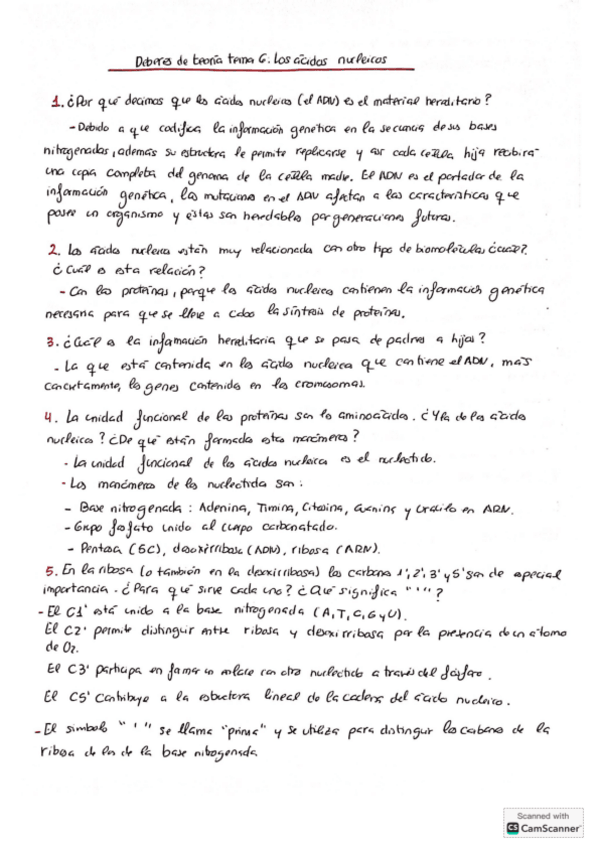 Deberes de teoría tema 6. Los ácidos nucleicos
1. ¿Por qué decimos que los ácidos nucleicos (el ADN) es el material hereditario?
- Debido a que codifica la información genética en la secuencia de sus bases
nitrogenadas, además su estructura le permite replicarse y así cada célula hija recibirá
una copia completa del genoma de la célula madre. El ADN es el portador de la
información genética, las mutaciones en el ADN afectan a las características que
posee un organismo y estas son heredables por generaciones futuras.
2. Los ácidos nucleicos están muy relacionados con otro tipo de biomoléculas ¿cuál?
¿Cuál es esta relación?
- Con las proteínas, porque los ácidos nucleicos contienen la información genética
necesaria para que se lleve a cabo la síntesis de proteínas.
3. ¿Cuál es la información hereditaria que se pasa de padres a hijos?
- La que está contenida en los ácidos nucleicos que contiene el ADN, más
concretamente, los genes contenidos en los cromosomas.
4. La unidad funcional de las proteínas son los aminoácidos. ¿Y la de los ácidos
nucleicos? ¿De qué están formados estos monómeros?
- La unidad funcional de los ácidos nucleicos es el nucleótido.
- Los monómeros de los nucleótidos son:
- Base nitrogenada: Adenina, Timina, Citosina, Guanina y Uracilo en ARN.
- Grupo fosfato unido al cuerpo carbonatado.
- Pentosa (5C), desoxirribosa (ADN), ribosa (ARN).
5. En la ribosa (o también en la desoxirribosa) los carbonos 1', 2', 3' y 5' son de especial
importancia. ¿Para qué sirve cada uno? ¿Qué significa " ' "?
- El C1' está unido a la base nitrogenada (A, T, C, G y U).
El C2' permite distinguir entre ribosa y desoxirribosa por la presencia de un átomo
de O2.
El C3' participa en formar un enlace con otro nucleótido a través del fósforo.
El C5' contribuye a la estructura lineal de la cadena del ácido nucleico.
- El símbolo " ' " se llama "prima" y se utiliza para distinguir los carbonos de la
ribosa de los de la base nitrogenada
Scanned with
CS CamScanner